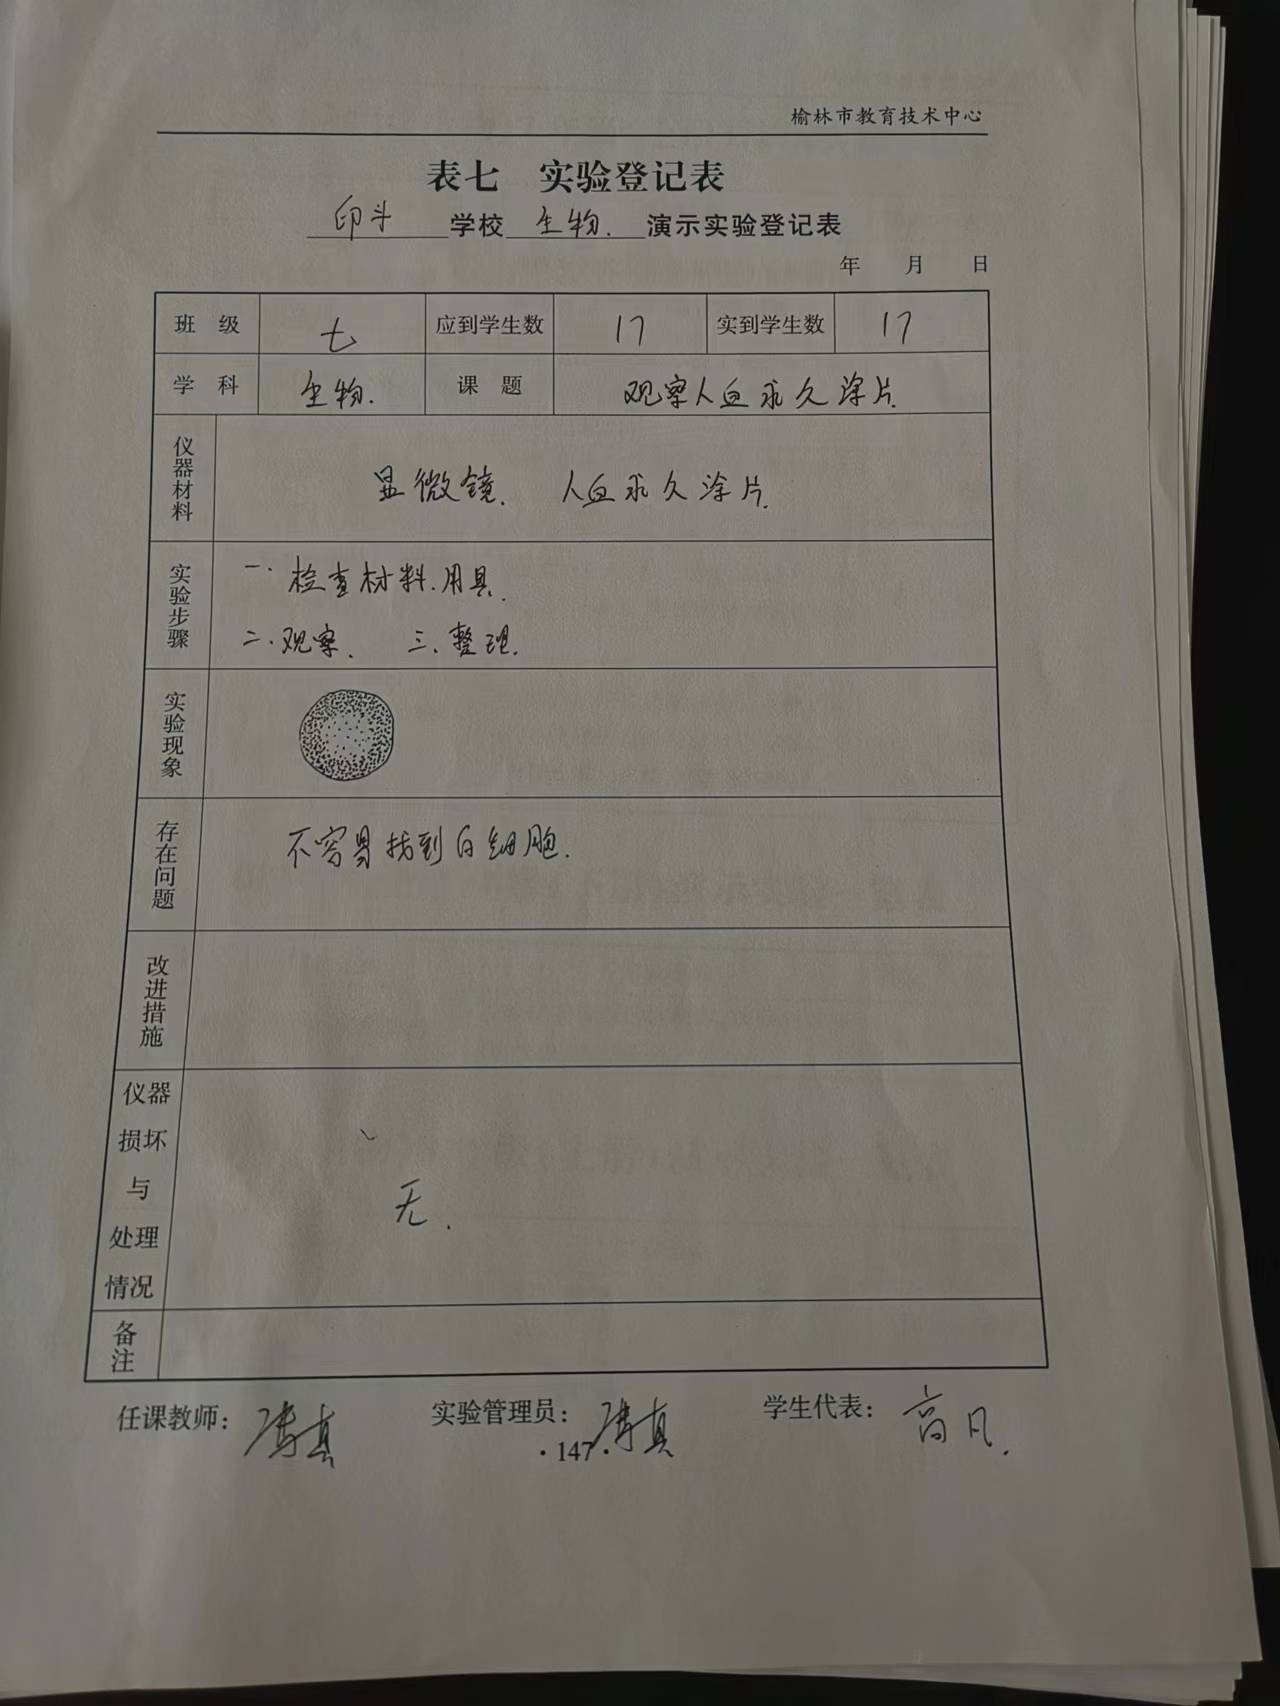 榆林市教育技术中心
表七 实验登记表
印斗学校生物.演示实验登记表
年 月 日
班 级 七 应到学生数 17 实到学生数 17
学 科 生物. 课 题 观察人血永久涂片
仪器材料 显微镜. 人血永久涂片.
实验步骤 一.检查材料.用具.
二.观察. 三.整理.
实验现象
存在问题 不容易找到白细胞.
改进措施
仪器
损坏
与
处理
情况
无.
备注
任课教师: 实验管理员: 学生代表: 高凡.
·147·